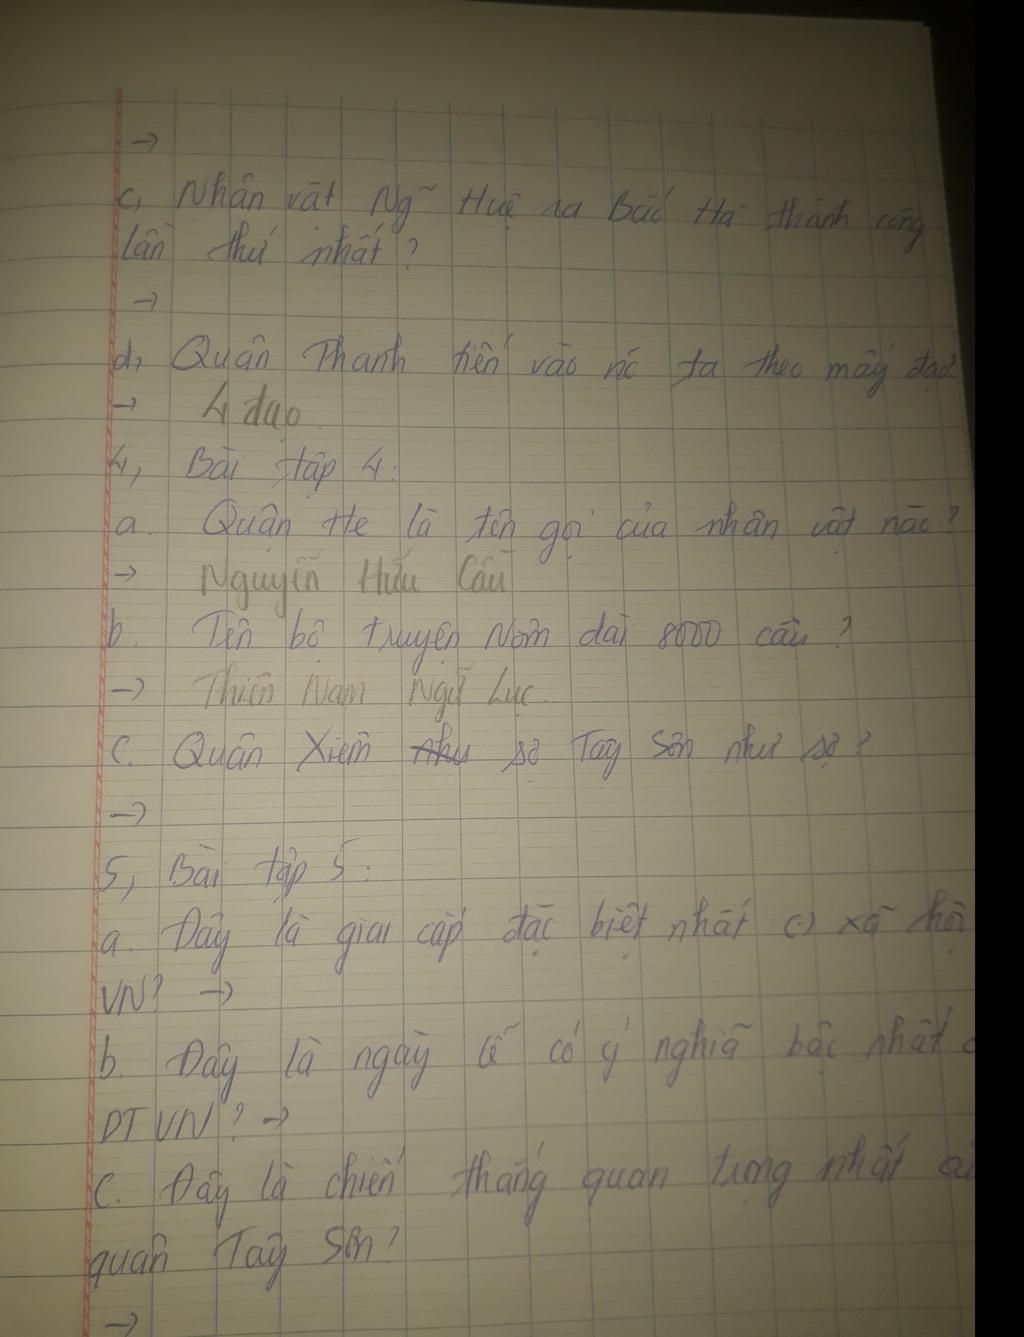 →
c, Nhân vật Ng~ Huệ ra Bắc Hà thành công
lần thứ nhất?
→
d, Quân Thanh tiến vào nc ta theo mấy đạo?
→ 4 đạo.
4, Bài tập 4:
a. Quận He là tên gọi của nhân vật nào?
→ Nguyễn Hữu Cầu
b. Tên bộ truyện Nôm dài 8000 câu?
→ Thiên Nam Ngữ Lục.
c. Quân Xiêm như sợ Tây Sơn như sợ?
→
5, Bài tập 5:
a. Đây là giai cấp đặc biệt nhất xã hội
VN? →
b. Đây là ngày lễ có ý nghĩa bậc nhất
DT VN? →
c. Đây là chiến thắng quan trọng nhất
quân Tây Sơn?
→